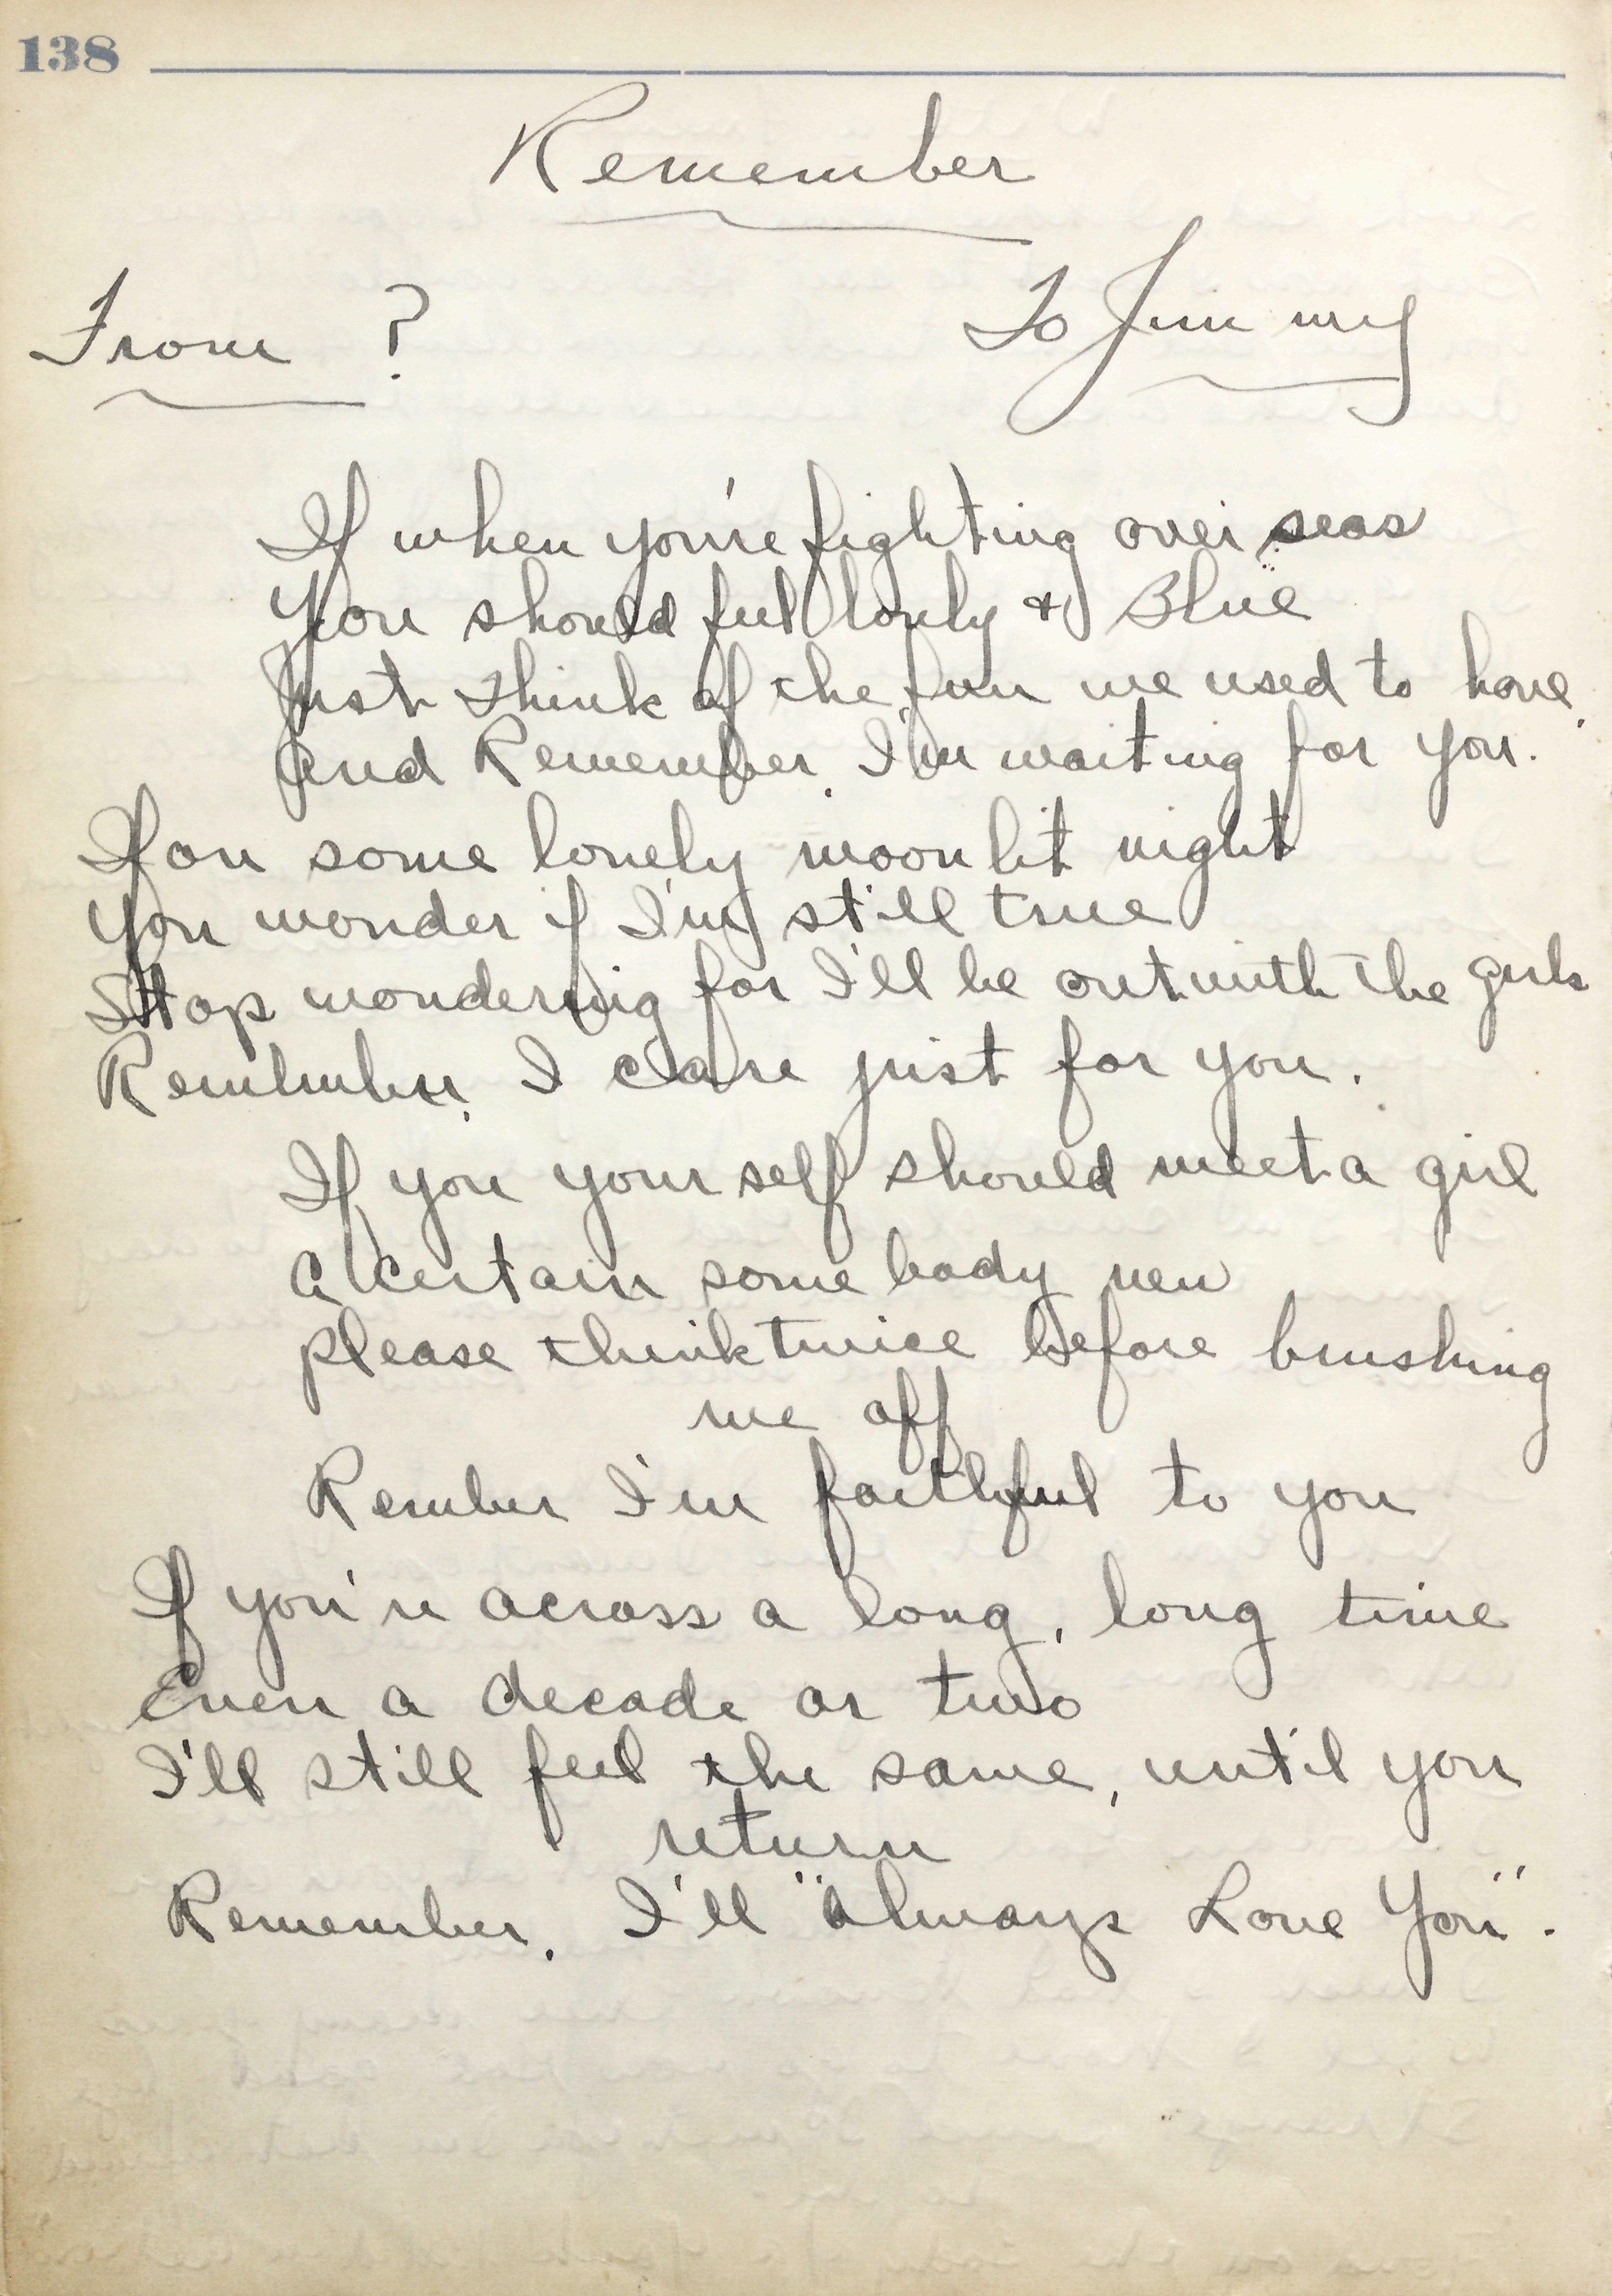 138
Remember
From ? To Jimmy
If when you're fighting over seas
You should feel lonly & Blue
Just think of the fun we used to have,
And Remember, I'm waiting for you.
If on some lonely moon lit night
You wonder if I'm still true
Stop wondering for I'll be out with the girls
Remember, I care just for you.
If you your self should meet a girl
A certain some body new
please think twice before brushing
me off
Rember I'm faithful to you
If you're across a long, long time
Even a decade or two
I'll still feel the same, until you
return
Remember, I'll "Always Love You".